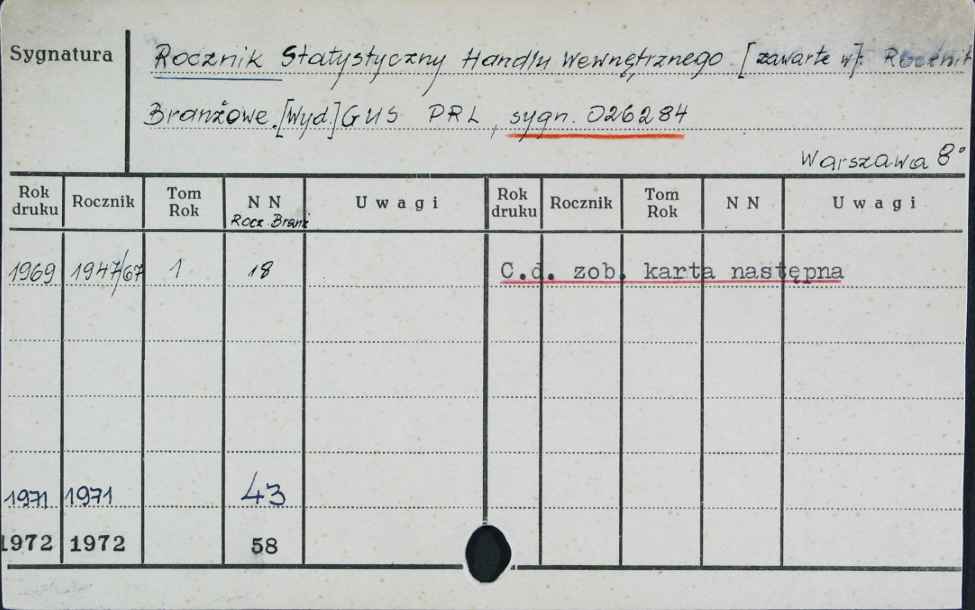 Sygnatura
Rocznik Statystyczny Handlu Wewnętrznego [zawarte w]: Rocznik
Branżowe.[Wyd.]GUS PRL, sygn. 026284
Warszawa 8°
Rok druku Rocznik Tom Rok N N Uwagi Rok druku Rocznik Tom Rok N N Uwagi
Rocz. Branż
1969 1947/67 1 18 C.d. zob. karta następna
1971 1971 43
1972 1972 58